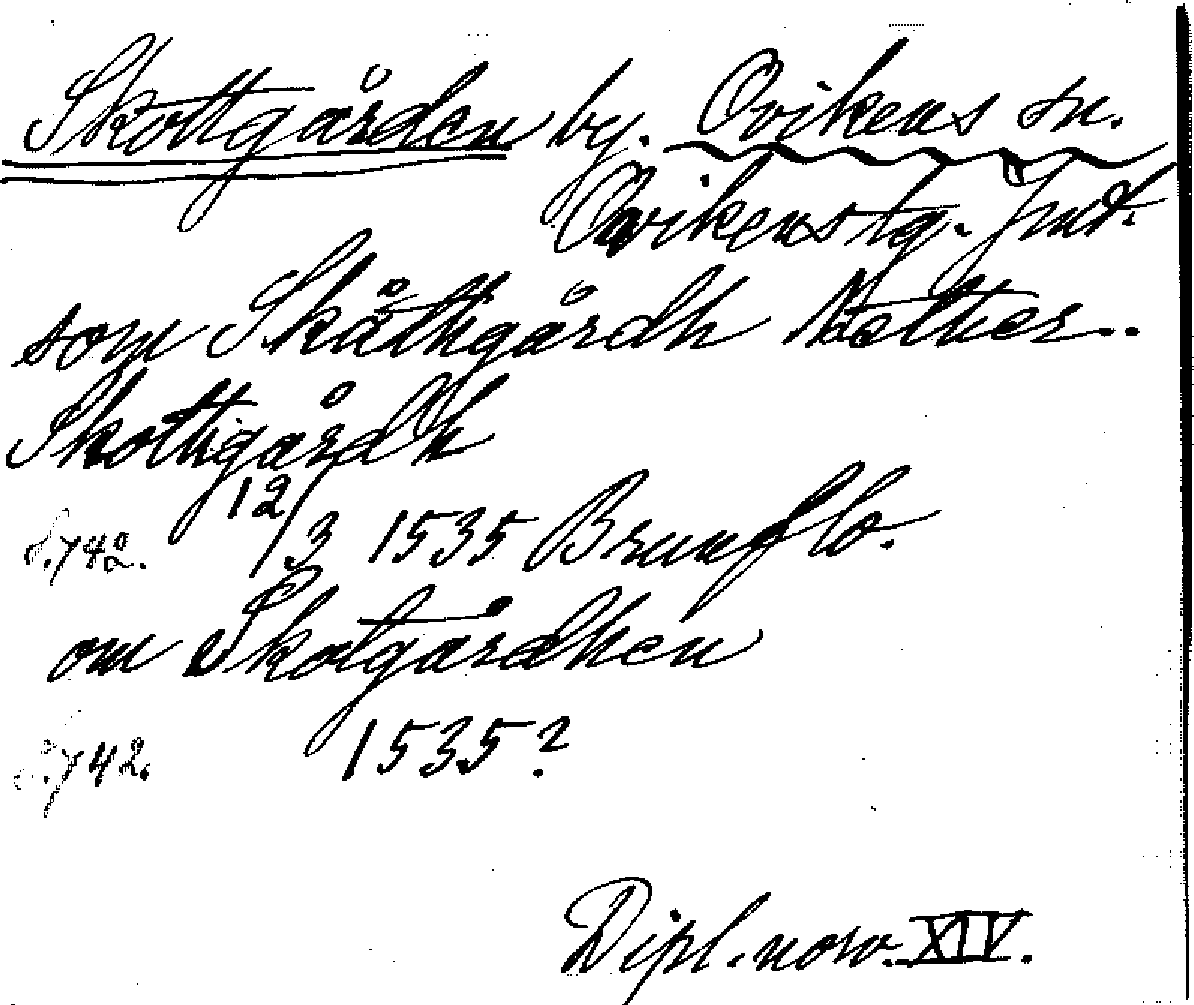 Skottgården by. Ovikens sn.
Ovikens tg. Jmt.
som Skåthgårdh Nether..
Skottgårdh
S. 742. 12/3 1535 Brunflo.
om Skotgårdhen
S. 742. 1535?
Dipl. norv. XIV.